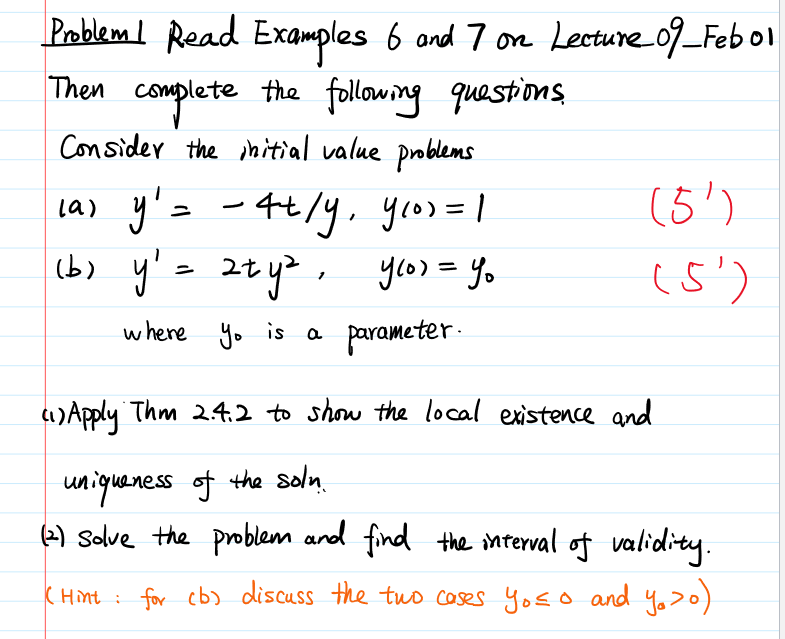 Problem 1 Read Examples 6 and 7 on Lecture_09_Feb 01
Then complete the following questions.
Consider the initial value problems
(a) y' = - 4t/y, y(0) = 1 (5')
(b) y' = 2ty², y(0) = y₀ (5')
where y₀ is a parameter.
(1) Apply Thm 2.4.2 to show the local existence and
uniqueness of the soln.
(2) Solve the problem and find the interval of validity.
(Hint : for (b) discuss the two cases y₀ ≤ 0 and y₀ > 0)